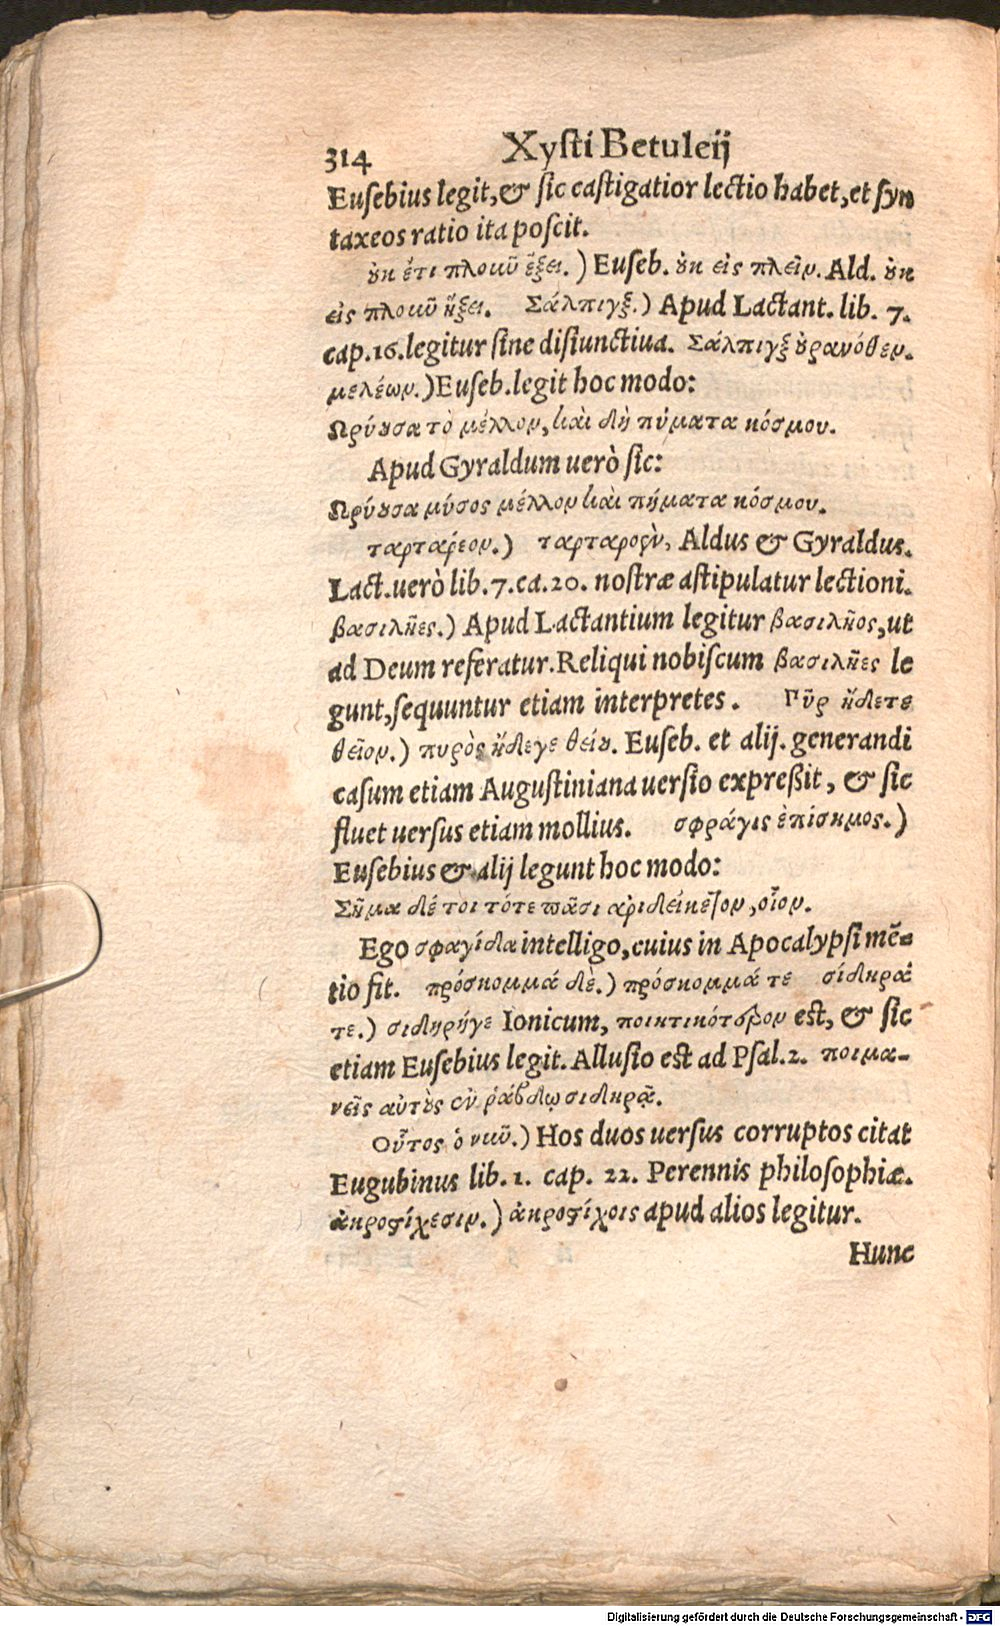 314 Xysti Betuleij
Eusebius legit, & sic castigatior lectio habet, et syn
taxeos ratio ita poscit.
οὐκ ἔτι πλοκοῦ ἕξει.) Euseb. οὐκ εἰς πλεῖν. Ald. οὐκ
εἰς πλοκοῦ ἥξει. Σάλπιγξ.) Apud Lactant. lib. 7.
cap. 16. legitur sine disiunctiua. Σάλπιγξ οὐρανόθεν.
μελέων.) Euseb. legit hoc modo:
Ωρύουσα τὸ μέλλον, καὶ δὴ πύματα κόσμου.
Apud Gyraldum uerò sic:
Ωρύουσα μύσος μέλλον καὶ πήματα κόσμου.
ταρτάρεον.) Aldus & Gyraldus.
Lact. uerò lib. 7. ca. 20. nostræ astipulatur lectioni.
βασιλῆες.) Apud Lactantium legitur βασιλῆος, ut
ad Deum referatur. Reliqui nobiscum βασιλῆες le
gunt, sequuntur etiam interpretes. Πῦρ ἠδέτε
θεῖον.) πυρὸς ἠδέγε θείου. Euseb. et alij. generandi
casum etiam Augustiniana uersio expreßit, & sic
fluet uersus etiam mollius. σφράγις ἐπίσημος.)
Eusebius & alij legunt hoc modo:
Σῆμα δέ τοι τότε πᾶσι ἀριδείκετον, οἷον.
Ego σφαγίδα intelligo, cuius in Apocalypsi mẽ-
tio fit. πρόσκομμά δὲ.) πρόσκομμά τε σίδηρά
τε.) σιδηρήγε Ionicum, ποιητικότερον est, & sic
etiam Eusebius legit. Allusio est ad Psal. 2. ποιμα-
νεῖς αὐτοὺς ἐν ῥάβδῳ σιδηρᾷ.
Οὗτος ὁ νῦν.) Hos duos uersus corruptos citat
Eugubinus lib. 1. cap. 22. Perennis philosophiæ.
ἀκροστίχεσιν.) ἀκροστίχοις apud alios legitur.
Hunc
Digitalisierung gefördert durch die Deutsche Forschungsgemeinschaft - DFG